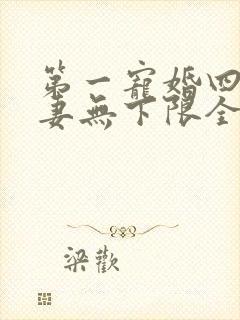 第一寵婚四
妻無下限全
梁歡